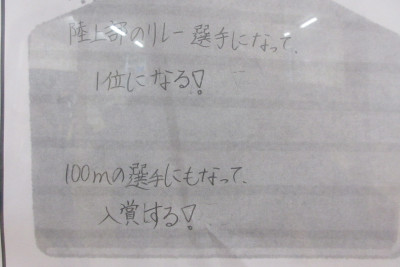 陸上部のリレー選手になって、
1位になる!
100mの選手にもなって、
入賞する!